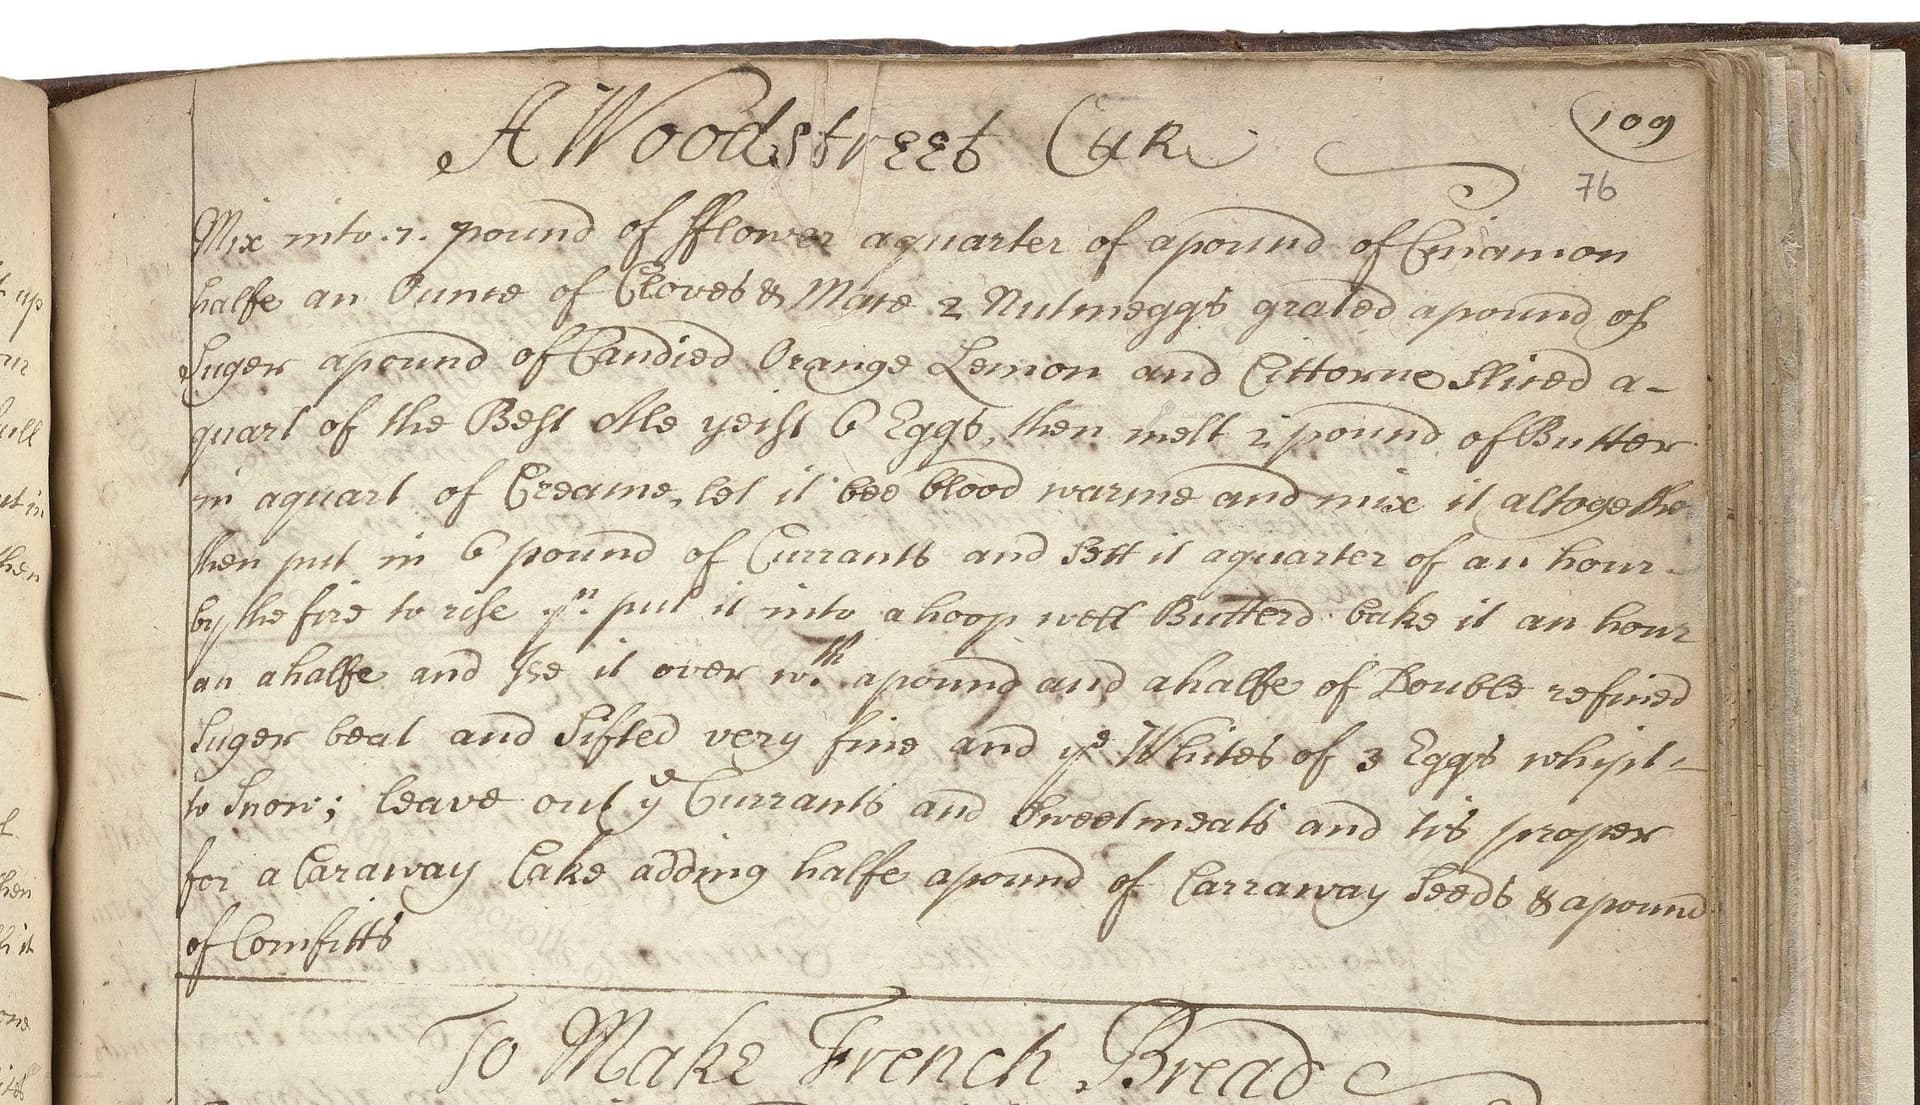 A Woodstreet Cake
109
76
Mix into .7. pound of fflower a quarter of a pound of Cinamon
halfe an Ounce of Cloves & Mace 2 Nutmeggs grated a pound of
Suger a pound of Candied Orange Lemon and Cittorne Sliced a-
quart of the Best Ale yeist 6 Eggs, then melt 2 pound of Butter
in a quart of Creame, let it bee blood warme and mix it altogether
then put in 6 pound of Currants and Sett it a quarter of an hour-
by the fire to rise yn. put it into a hoop well Butterd bake it an hour
an a halfe and Ise it over wth. a pound and a halfe of Double refined
Suger beat and Sifted very fine and ye Whites of 3 Eggs whipt-
to Snow; leave out ye Currants and Sweetmeats and tis proper
for a Caraway Cake adding halfe a pound of Carraway Seeds & a pound
of Comfitts
To Make French Bread